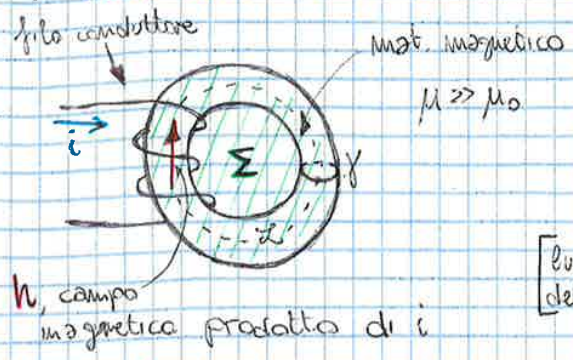 filo conduttore
mat. magnetico
μ >> μ₀
i
Σ
γ
L
h, campo
magnetico prodotto di i